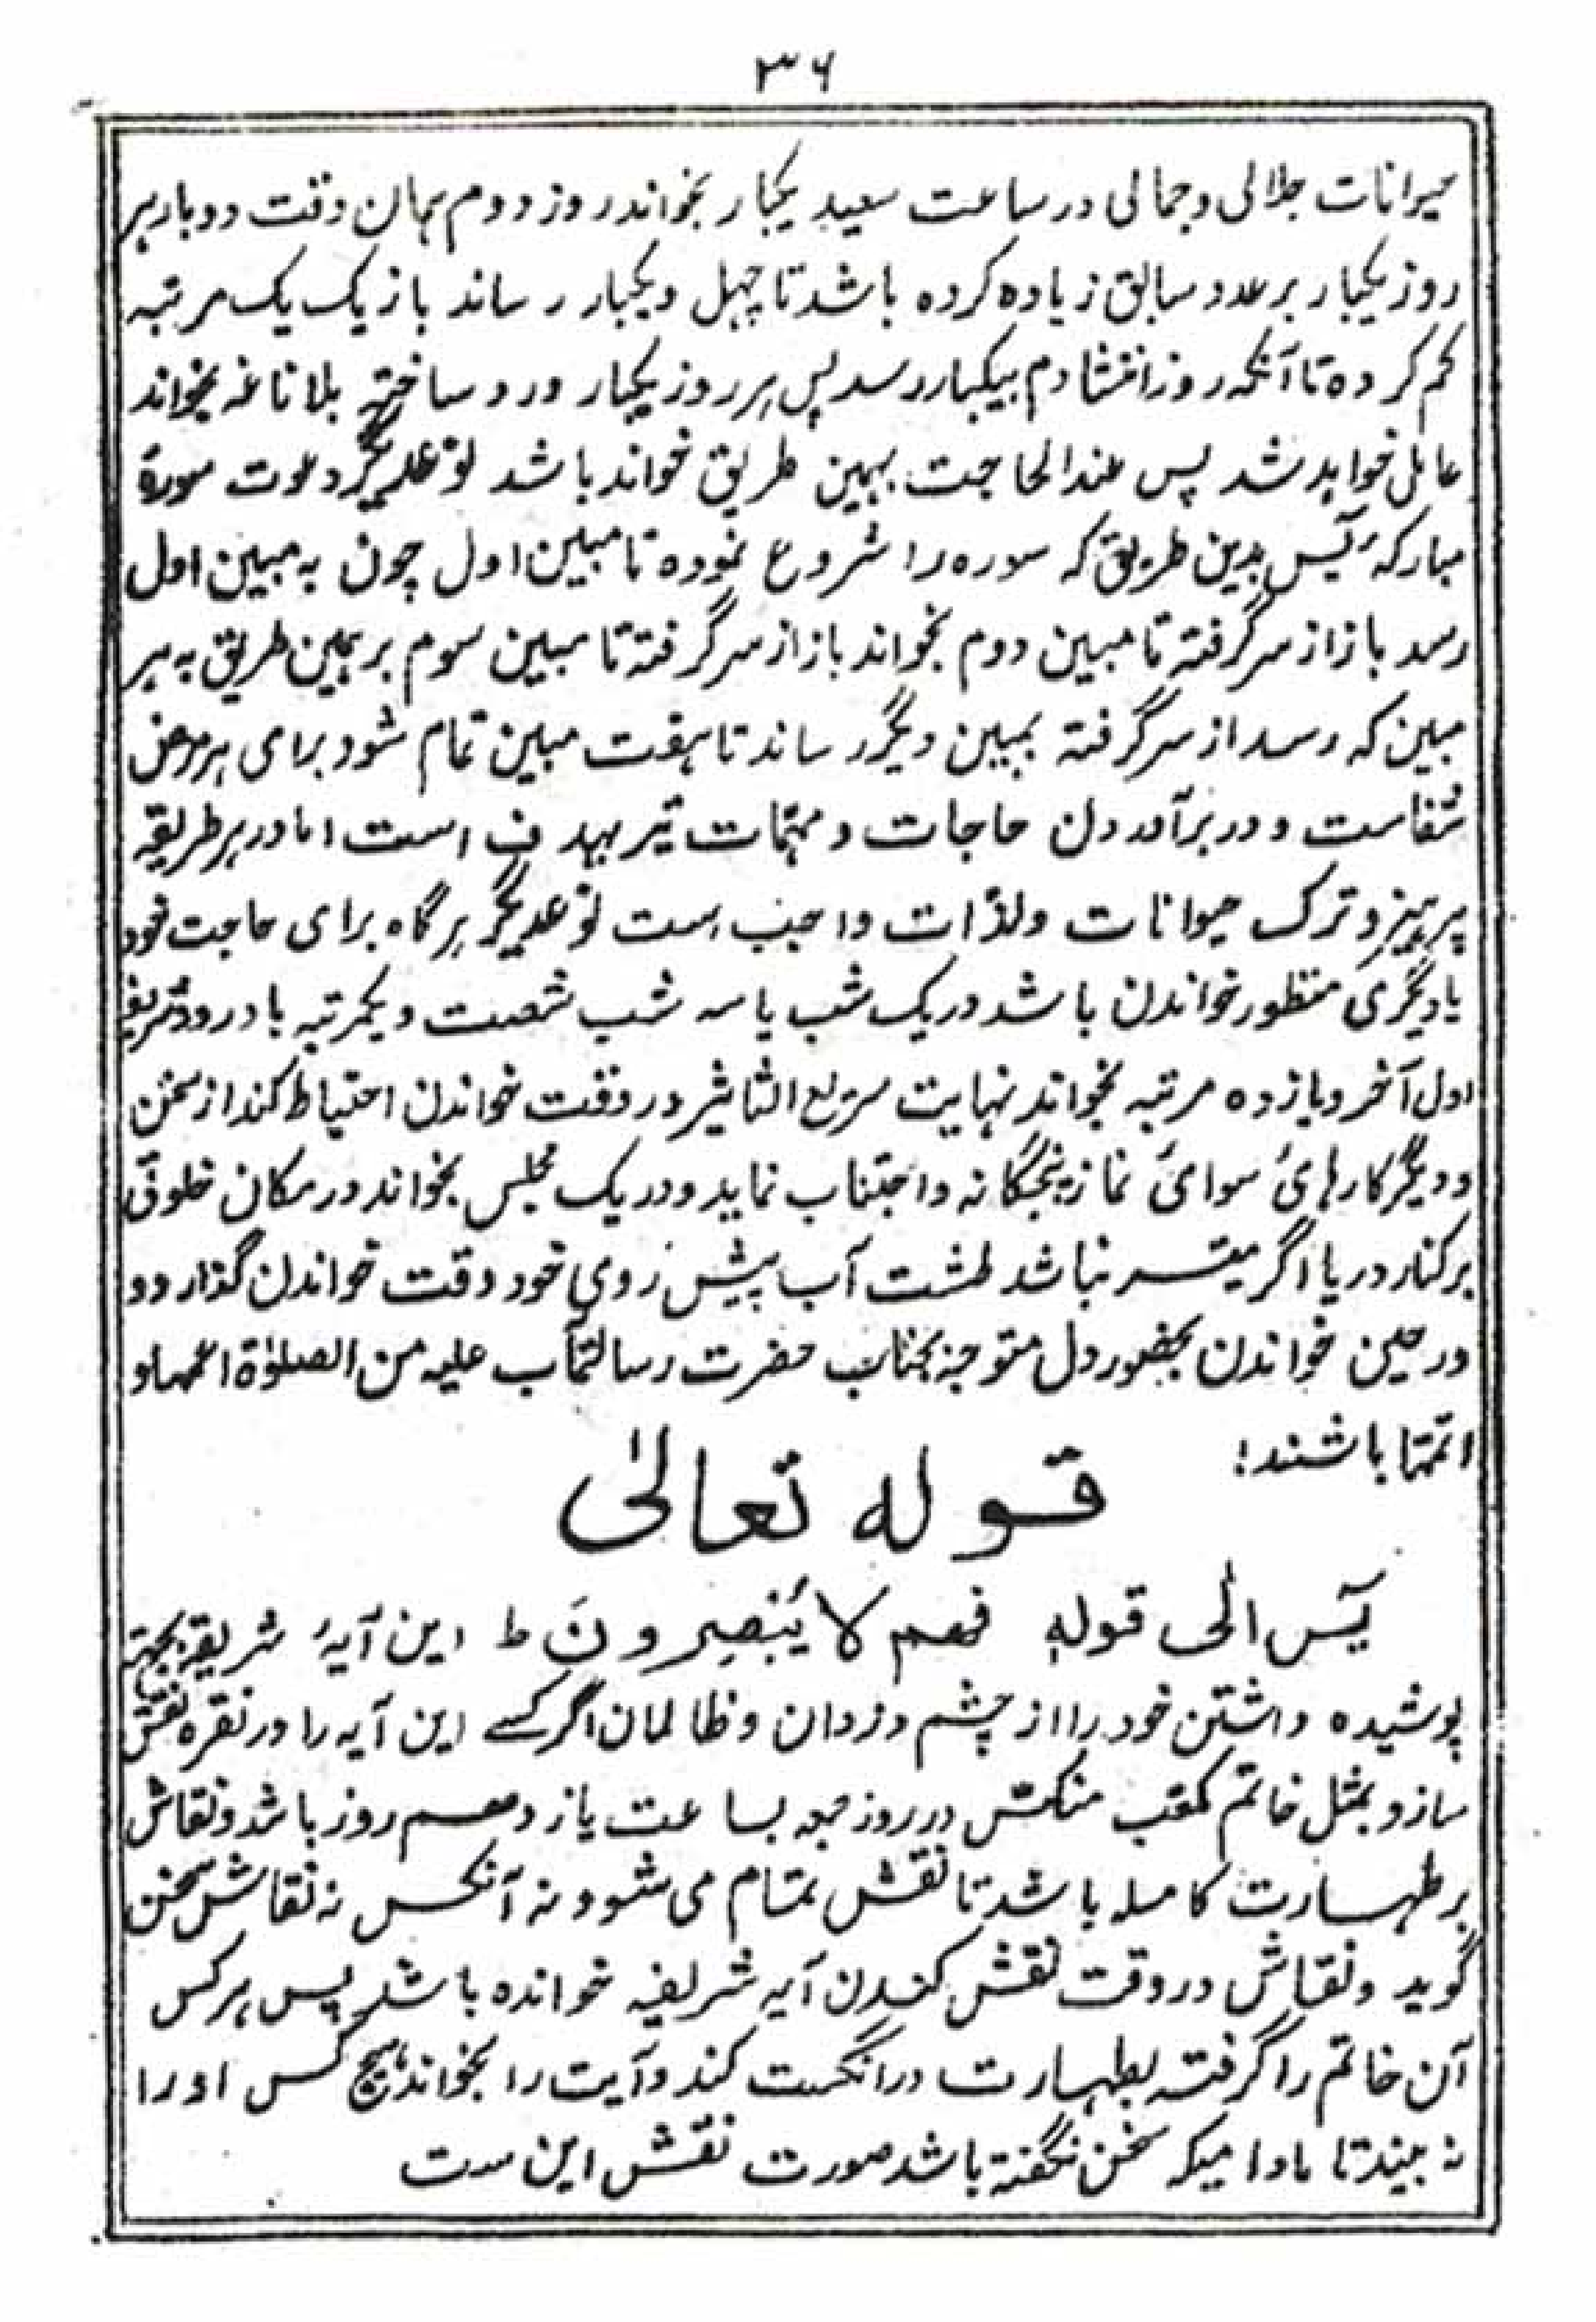 ۳۶
حیوانات جلالی و جمالی در ساعت سعید یکبار بخواند روز دوم همان وقت دوبار هر
روز یکبار بر عدد سابق زیاده کرده باشد تا چهل و یکبار رساند باز یک یک مرتبه
کم کرده تا آنکه روز دم بیکبار رسد پس هر روز یکبار ورد ساخته بلا ناغه بخواند
عامل خواهد شد پس عند الحاجت بهمین طریق خواند باشد نوعدیگر دعوت سورة
مبارکهٔ یٰس بدین طریق که سوره را شروع نموده تا مبین اول چون به مبین اول
رسد باز از سر گرفته تا مبین دوم بخواند باز از سر گرفته تا مبین سوم بر همین طریق به هر
مبین که رسد از سر گرفته بمبین دیگر رساند تا هفت مبین تمام شود برای هر مرض
شفاست و در برآمدن حاجات و مهمّات تیر بهدف است اما در هر طریقه
پرهیز و ترک حیوانات و لذّات واجب است نوعدیگر هرگاه برای حاجت خود
یا دیگری منظور خواندن باشد در یک شب یا سه شب شصت و یکمرتبه با درود شریف
اول آخر و یازده مرتبه بخواند نهایت سریع التاثیر در وقت خواندن احتیاط کند از سخن
و دیگر کارهائ سوائ نماز پنجگانه و اجتناب نماید و در یک مجلس بخواند در مکان خلوتی
بر کنار دریا اگر میسّر نباشد طشت آب پیش روی خود وقت خواندن گذارد و
در حین خواندن بحضور دل متوجه بجناب حضرت رسالتمآب علیه من الصلوٰة اعمها و
اتمّها باشند!
قوله تعالیٰ
یٰس الٰی قوله فهم لا یُبْصِرونَ ط این آیهٔ شریفه بجهة
پوشیده داشتن خود را از چشم دزدان و ظالمان اگر کسے این آیه را در نقره نقش
سازد بمثل خاتم مکعب در روز جمعه بساعت یازدهم روز باشد و نقاش
بر طهارت کامله باشد تا نقش تمام می شود و نه آنکس نه نقاش سخن
گوید و نقاش در وقت نقش کندن آیه شریفه خوانده باشد پس هر کس
آن خاتم را گرفته بطهارت در انگشت کند و آیت را بخواند هیچ کس او را
نه بیند تا مادامیکه سخن نگفته باشد صورت نقش این ست